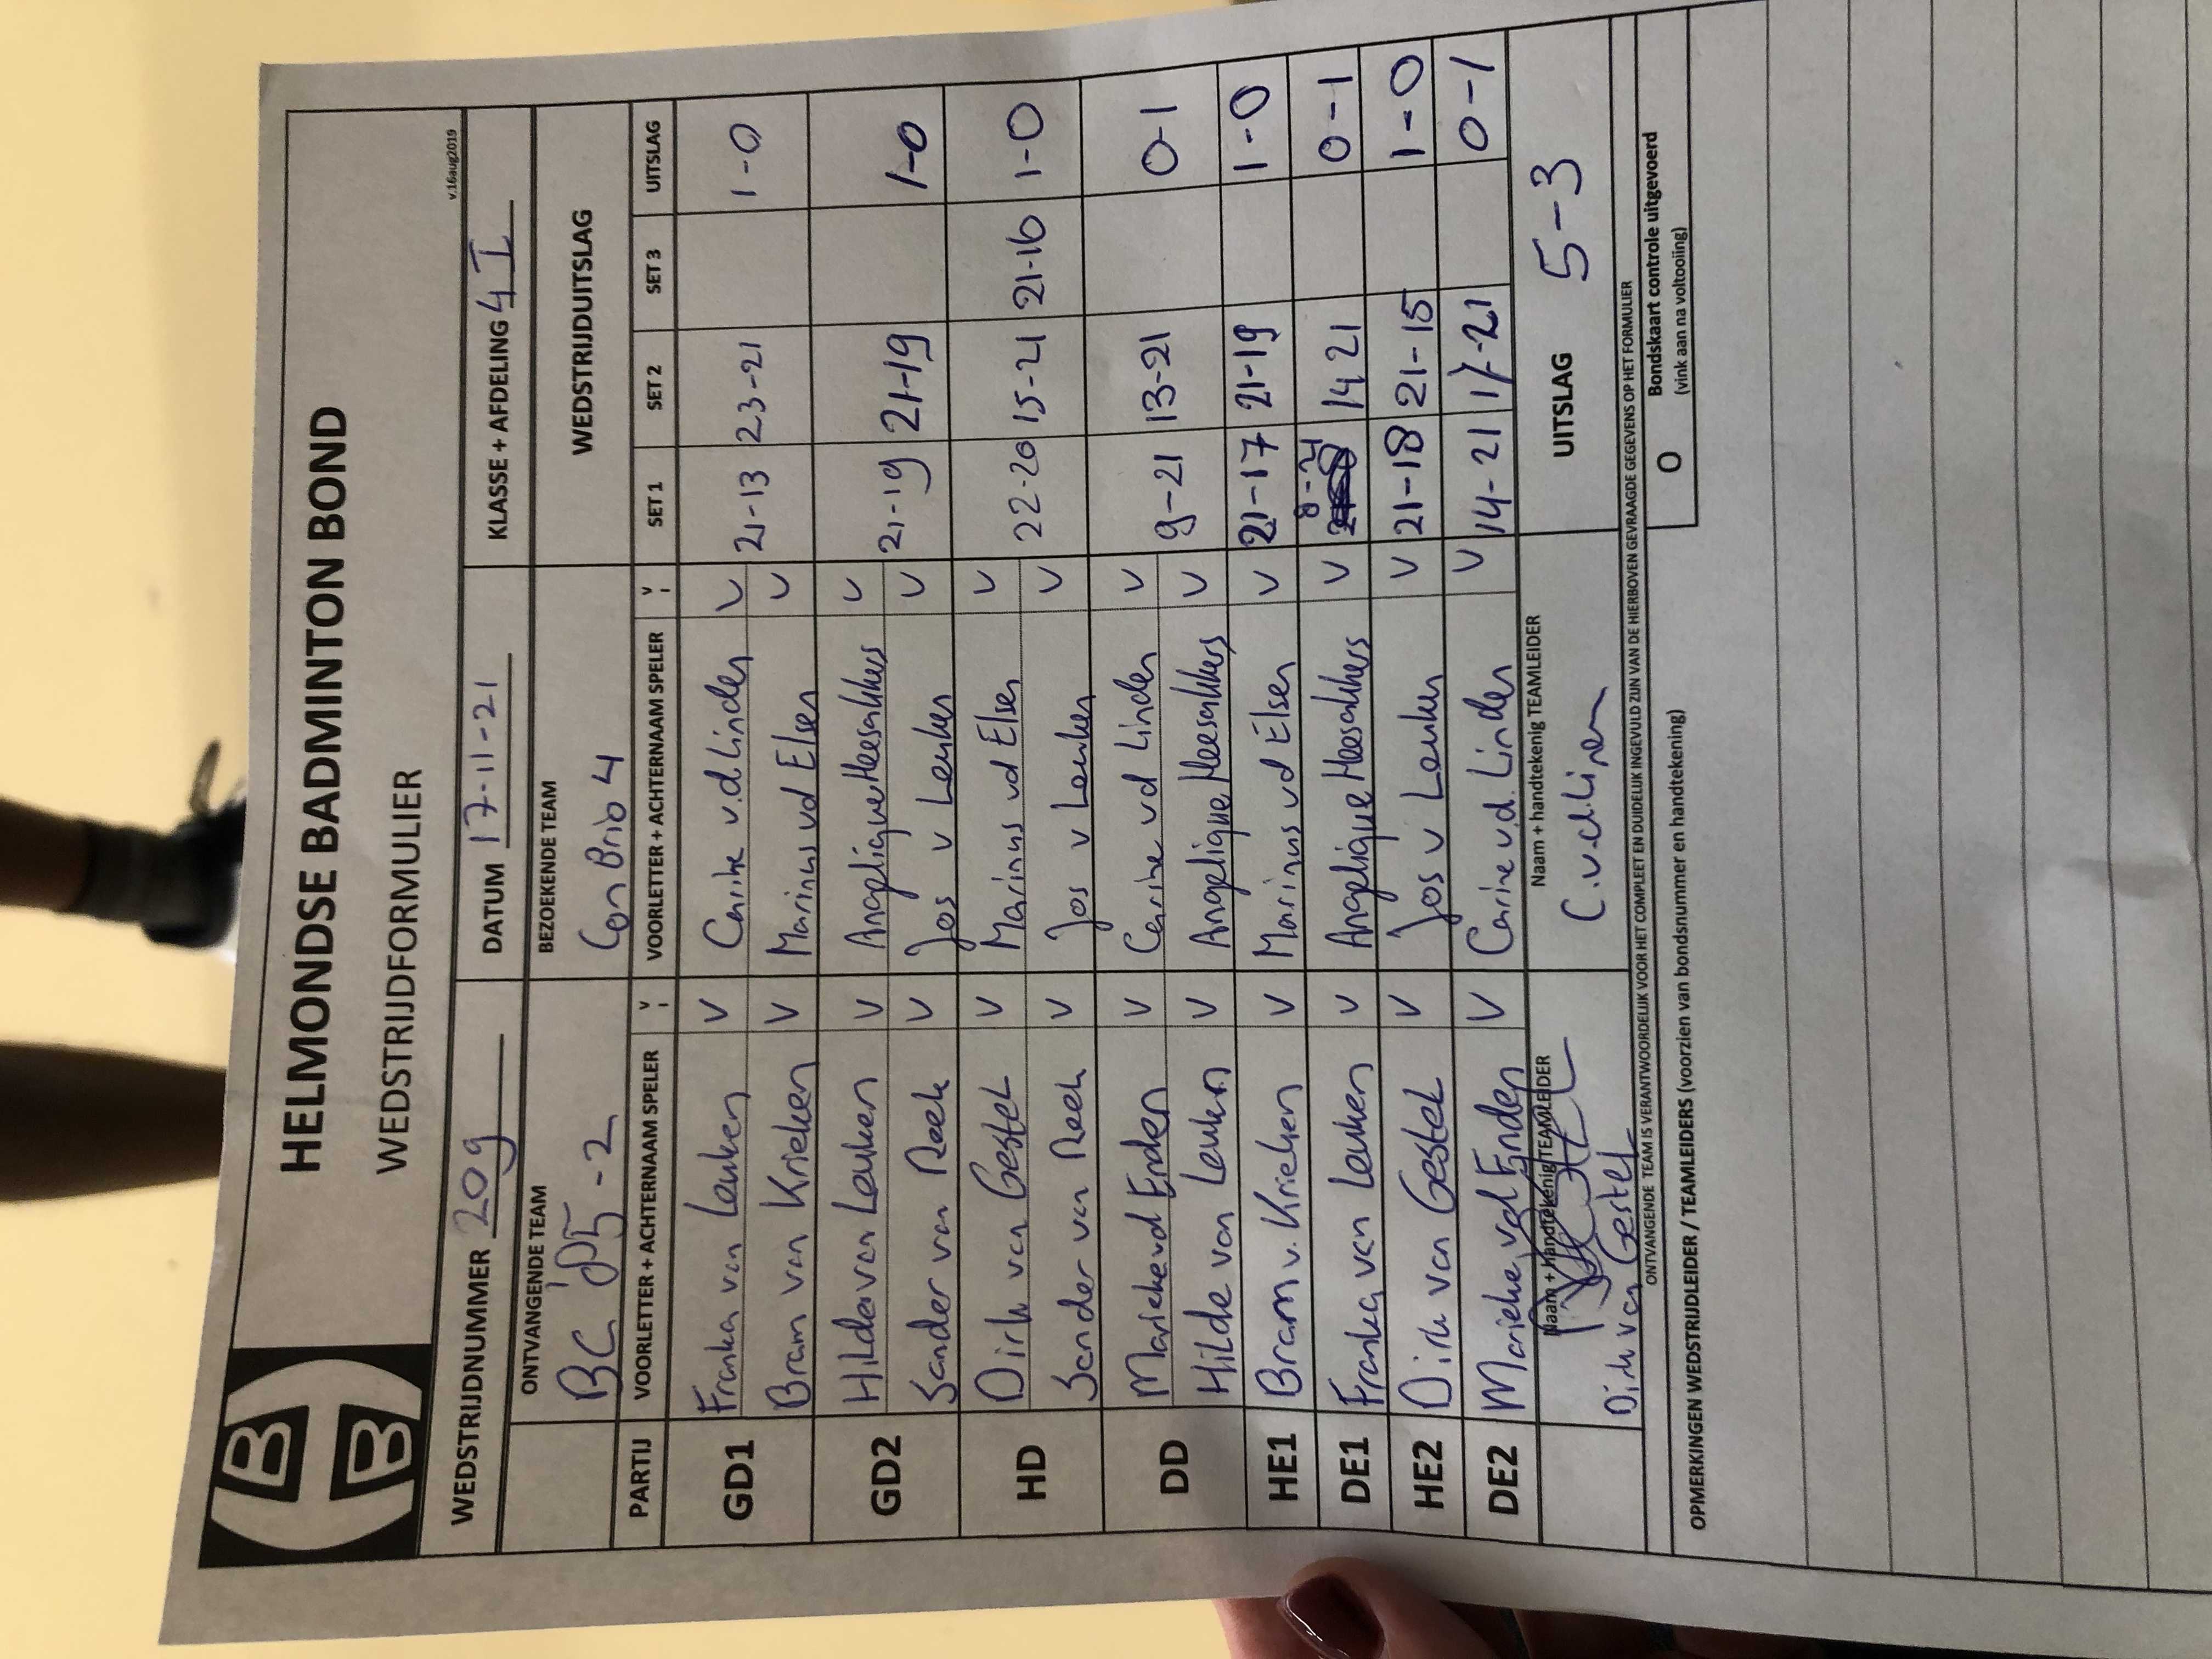 HBB
HELMONDSE BADMINTON BOND
WEDSTRIJDFORMULIER
v.16aug2019
WEDSTRIJDNUMMER 209 DATUM 17-11-21 KLASSE + AFDELING 4 I
ONTVANGENDE TEAM BEZOEKENDE TEAM WEDSTRIJDUITSLAG
BC '85-2 Con Brio 4
PARTIJ VOORLETTER + ACHTERNAAM SPELER V VOORLETTER + ACHTERNAAM SPELER V SET 1 SET 2 SET 3 UITSLAG
GD1 Franka van Leuken V Carine v.d. Linden V 21-13 23-21 1-0
Bram van Krieken V Marinus vd Elsen V
GD2 Hilde van Leuken V Angelique Heesakkers V 21-19 21-19 1-0
Sander van Reek V Jos v Leuken V
HD Dirk van Gestel V Marinus vd Elsen V 22-20 15-21 21-16 1-0
Sander van Reek V Jos v Leuken V
DD Marieke vd Enden V Carine vd Linden V 9-21 13-21 0-1
Hilde van Leuken V Angelique Heesakkers V
HE1 Bram v. Krieken V Marinus vd Elsen V 21-17 21-19 1-0
DE1 Franka van Leuken V Angelique Heesakkers V 8-21 14 21 0-1
HE2 Dirk van Gestel V Jos v Leuken V 21-18 21-15 1-0
DE2 Marieke vd Enden V Carine v.d. Linden V 14-21 17-21 0-1
Naam + handtekenig TEAMLEIDER Naam + handtekenig TEAMLEIDER UITSLAG 5-3
Dirk van Gestel C.vd.Linden
ONTVANGENDE TEAM IS VERANTWOORDELIJK VOOR HET COMPLEET EN DUIDELIJK INGEVULD ZIJN VAN DE HIERBOVEN GEVRAAGDE GEGEVENS OP HET FORMULIER
O Bondskaart controle uitgevoerd
(vink aan na voltooiing)
OPMERKINGEN WEDSTRIJDLEIDER / TEAMLEIDERS (voorzien van bondsnummer en handtekening)